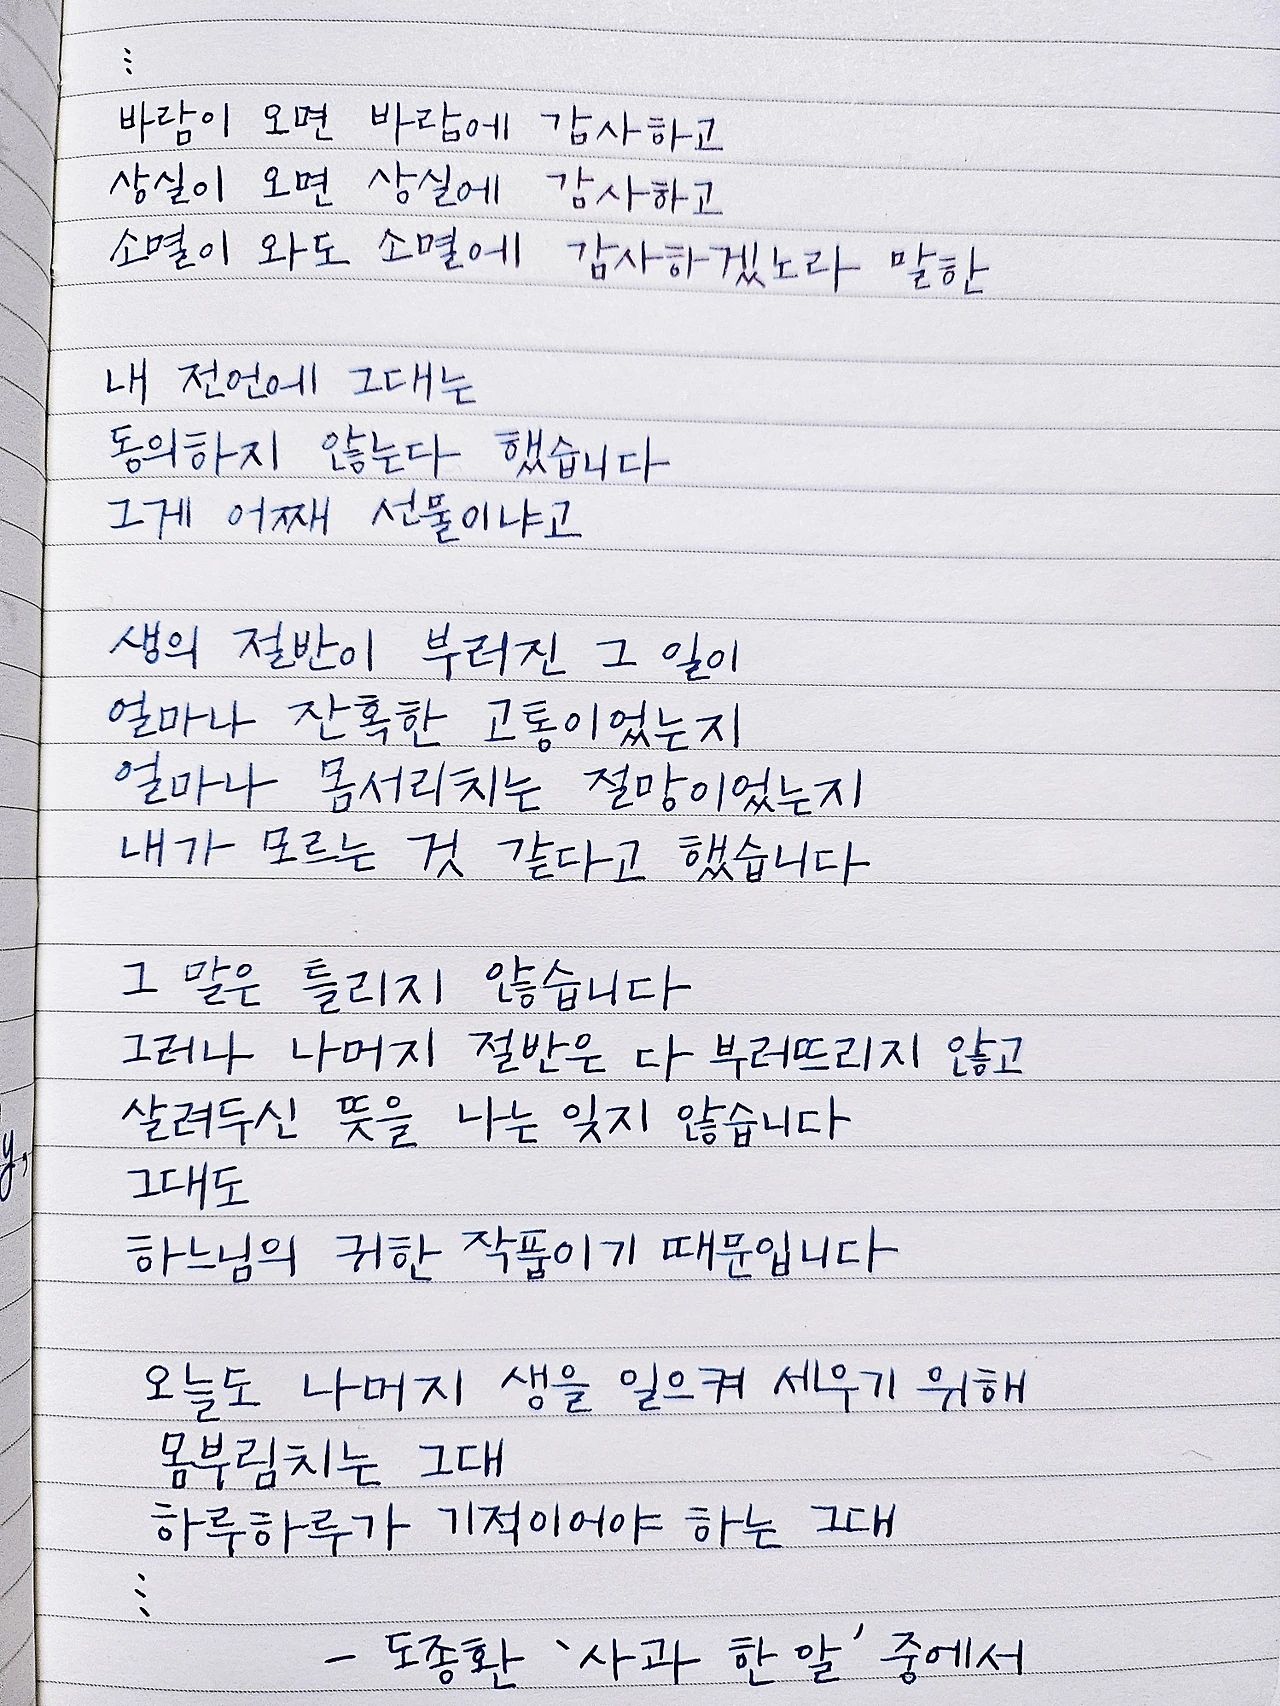 ⋮
바람이 오면 바람에 감사하고
상실이 오면 상실에 감사하고
소멸이 와도 소멸에 감사하겠노라 말한
내 전언에 그대는
동의하지 않는다 했습니다
그게 어째 선물이냐고
생의 절반이 부러진 그 일이
얼마나 잔혹한 고통이었는지
얼마나 몸서리치는 절망이었는지
내가 모르는 것 같다고 했습니다
그 말은 틀리지 않습니다
그러나 나머지 절반은 다 부러뜨리지 않고
살려두신 뜻을 나는 잊지 않습니다
그대도
하느님의 귀한 작품이기 때문입니다
오늘도 나머지 생을 일으켜 세우기 위해
몸부림치는 그대
하루하루가 기적이어야 하는 그대
⋮
- 도종환 '사과 한 알' 중에서